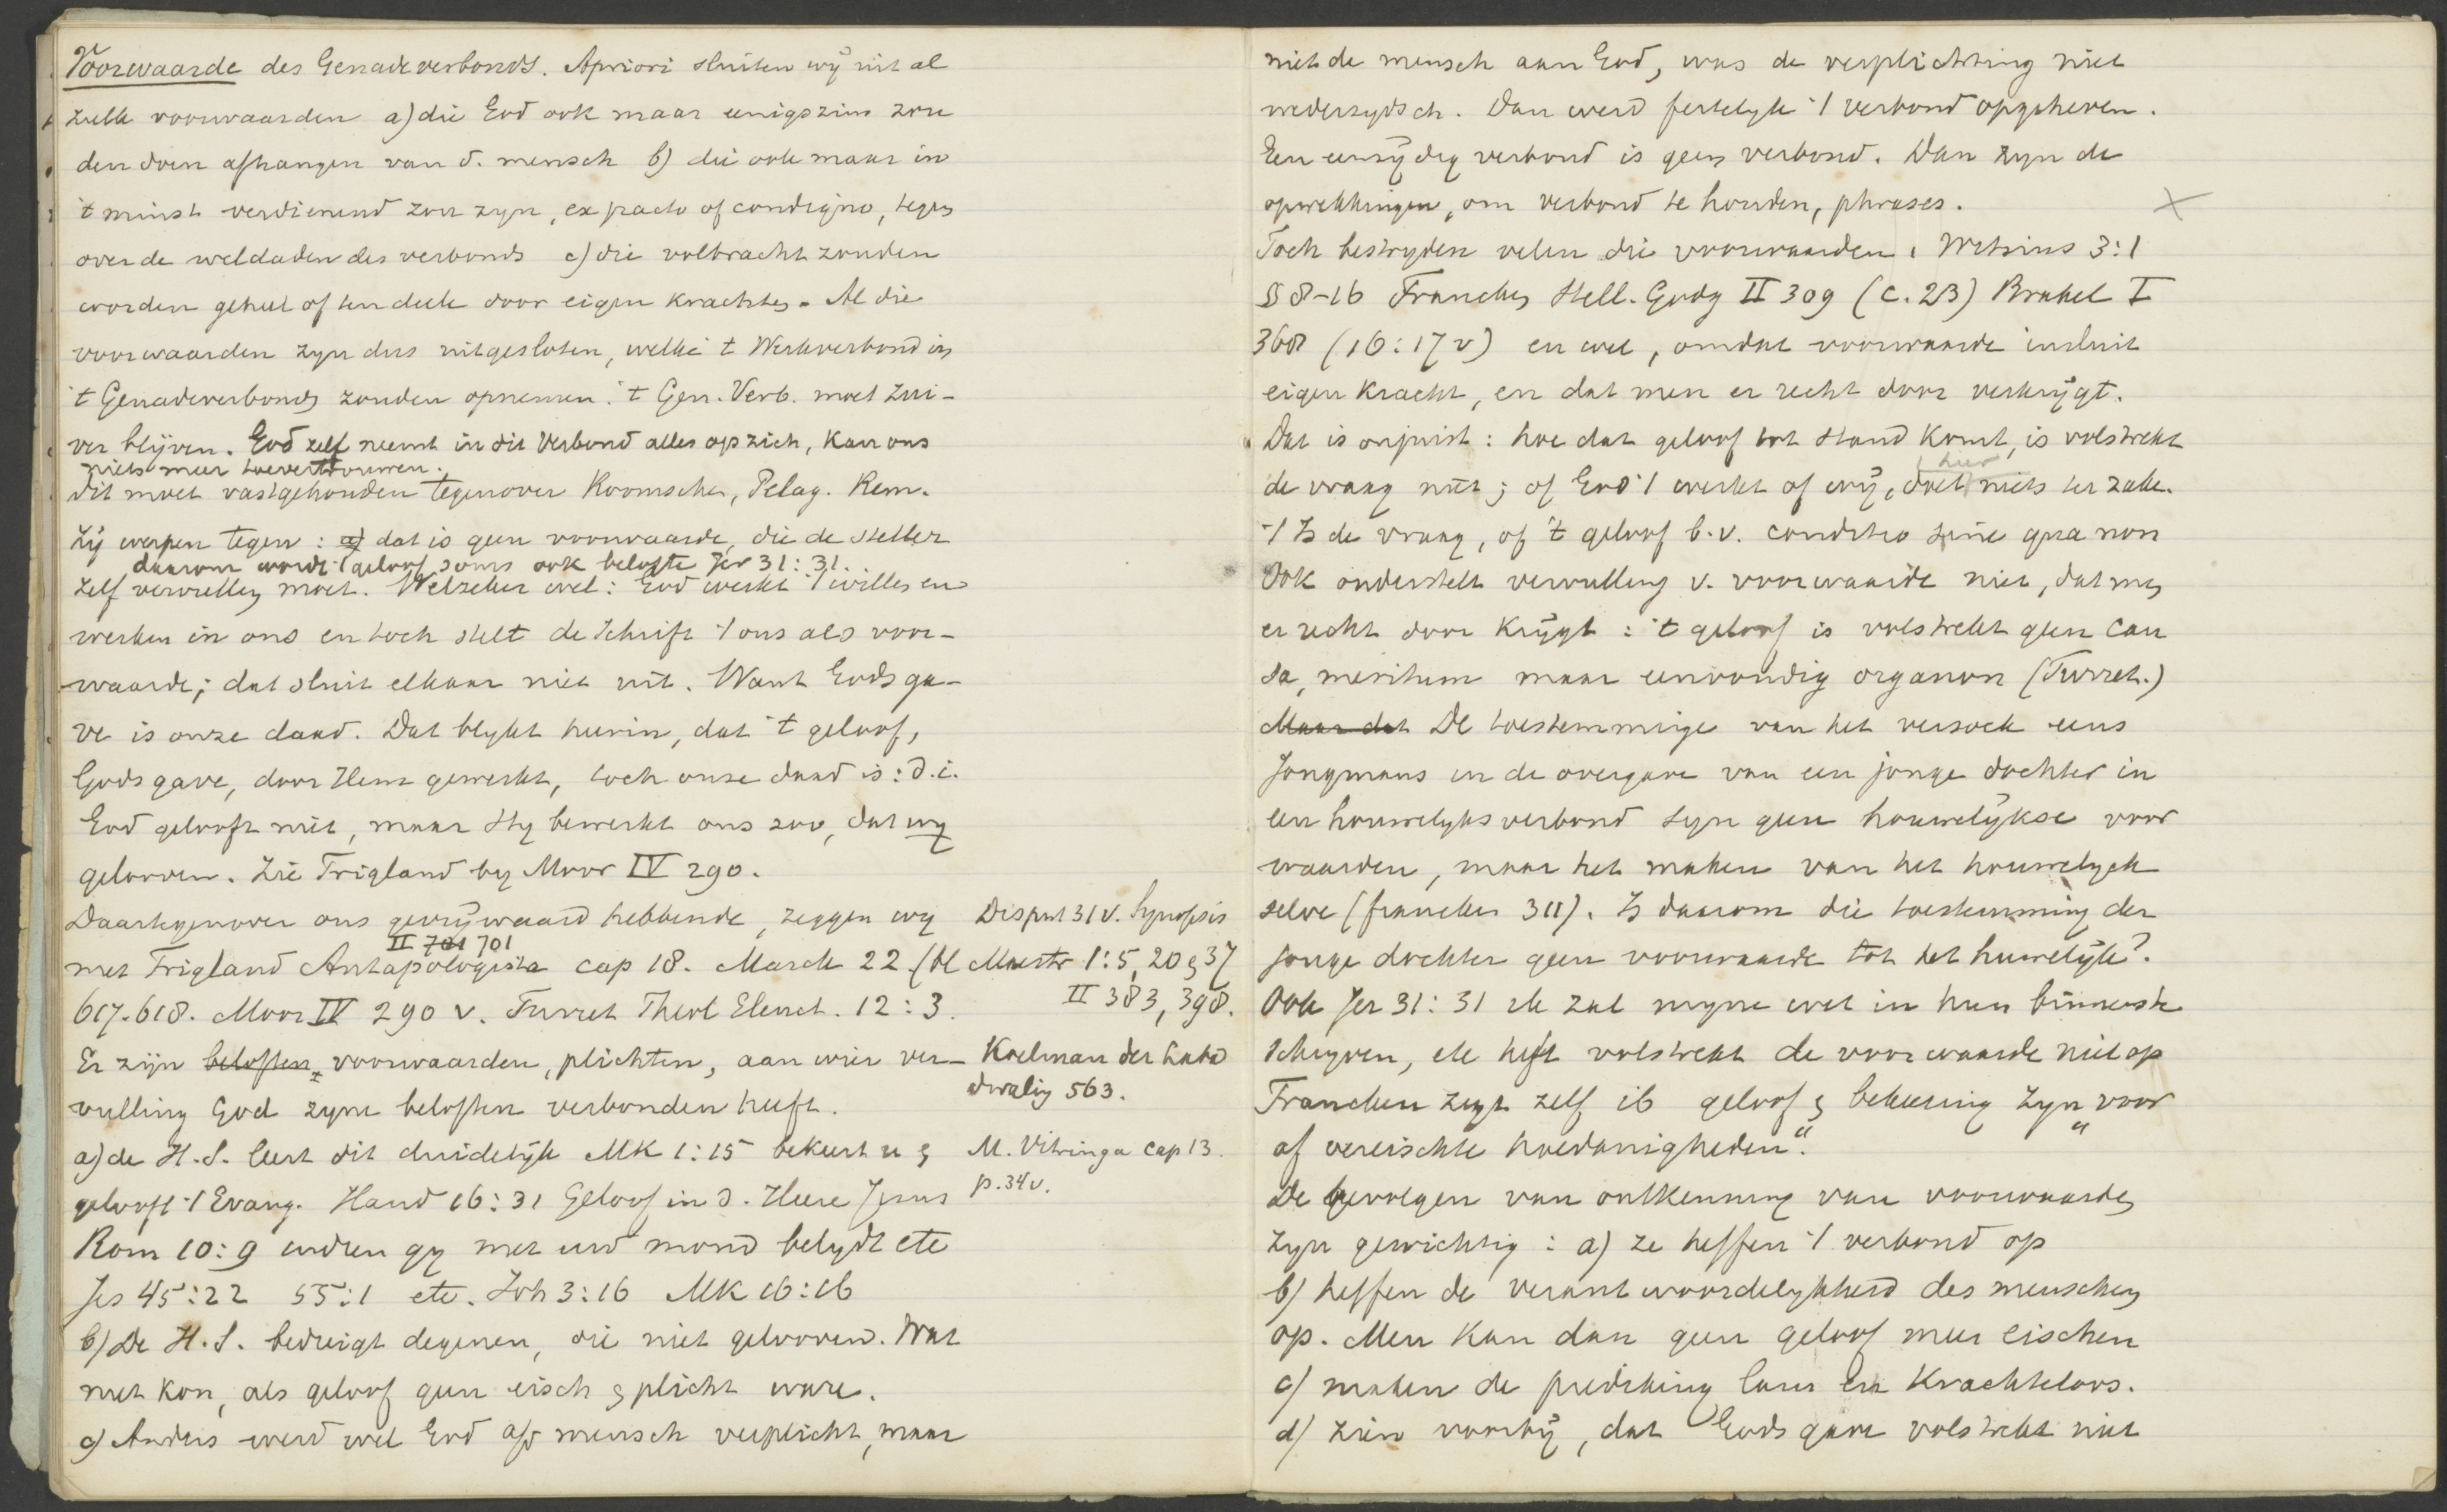 Voorwaarde des Genadeverbonds. Apriori sluiten wij uit al
zulke voorwaarden a) die God ook maar eenigszins zou
den doen afhangen van d. mensch b) die ook maar in
't minst verdienend zou zyn, ex pacto of condigno, tegen
over de weldaden des verbonds c) die volbracht zouden
worden geheel of ten deele door eigen krachten. Al die
voorwaarden zyn dus uitgesloten, welke 't Werkverbond in
't Genadeverbond zouden opnemen. 't Gen. Verb. moet zui-
ver blijven. God zelf neemt in dit Verbond alles op zich, kan ons
niets meer toevertrouwen.
Dit moet vastgehouden tegenover Roomschen, Pelag. Rem.
Zij werpen tegen: a) dat is geen voorwaarde, die de steller
daarom wordt 't geloof soms ook belofte Jer 31:31.
zelf vervullen moet. Welzeker wel: God werkt 't willen en
werken in ons en toch stelt de Schrift 't ons als voor-
waarde; dat sluit elkaar niet uit. Want Gods ga-
ve is onze daad. Dat blykt hierin, dat 't geloof,
Gods gave, door Hem gewerkt, toch onze daad is: d.i.
God gelooft niet, maar Hy bewerkt ons zoo, dat wy
gelooven. Zie Trigland by Moor IV 290.
Daartegenover ons gevrijwaard hebbende, zeggen wy
II 701 701
met Trigland Antapologia cap 18. Marck 22 (bl
617-618. Moor IV 290 v. Turret Theol Elenct. 12:3.
Er zijn beloften, voorwaarden, plichten, aan wier ver-
vulling God zyne beloften verbonden heeft.
a) de H.S. leert dit duidelijk Mk 1:15 bekeert u &
gelooft 't Evang. Hand 16:31 Geloof in d. Heere Jesus
Rom 10:9 indien gy met uw mond belydt etc
Jes 45:22 55:1 etc. Joh 3:16 Mk 16:16
b) De H.S. bedreigt degenen, die niet gelooven. Wat
niet kon, als geloof geen eisch & plicht ware.
c) Anders werd wel God a/d mensch verplicht, maar
Disput 31 v. Synopsis
Mastr 1:5, 20 & 37
II 383, 398.
Koelman der Labad
dwaling 563.
M. Vitringa cap 13.
p. 34 v.
niet de mensch aan God, was de verplichting niet
wederzydsch. Dan werd feitelyk 't verbond opgeheven.
Een eenzijdig verbond is geen verbond. Dan zyn de
opwekkingen, om verbond te houden, phrases.
Toch bestryden velen die voorwaarden. Witsius 3:1
§ 8-16 Francken Stell. Godg II 309 (c. 23) Brakel I
368 (16:17 v) en wel, omdat voorwaarde insluit
eigen kracht, en dat men er recht door verkrijgt.
Dat is onjuist: hoe dat geloof tot stand komt, is volstrekt
hier
de vraag niet; of God 't werkt of wij, doet niets ter zake.
't Is de vraag, of 't geloof b.v. conditio sine qua non
Ook onderstelt vervulling v. voorwaarde niet, dat men
er recht door krijgt: 't geloof is volstrekt geen cau
sa, meritum maar eenvoudig organon (Turret.)
Maar dat De toestemminge van het versoek eens
Jongmans en de overgave van een jonge dochter in
een houwelyksverbond syn geen houwelijkse voor
waarden, maar het maken van het houwelyck
selve (francken 311). Is daarom die toestemming der
jonge dochter geen voorwaarde tot het huwelijk?
Ook Jer 31:31 ik zal myne wet in hun binnenste
schryven, etc heft volstrekt de voorwaarde niet op
Francken zegt zelf ib geloof & bekeering zyn „voor
af vereischte hoedanigheden".
De gevolgen van ontkenning van voorwaarden
zyn gewichtig: a) ze heffen 't verbond op
b) heffen de verantwoordelykheid des menschen
op. Men kan dan geen geloof meer eischen
c) maken de prediking laus en krachteloos.
d) zien voorbij, dat Gods gave volstrekt niet